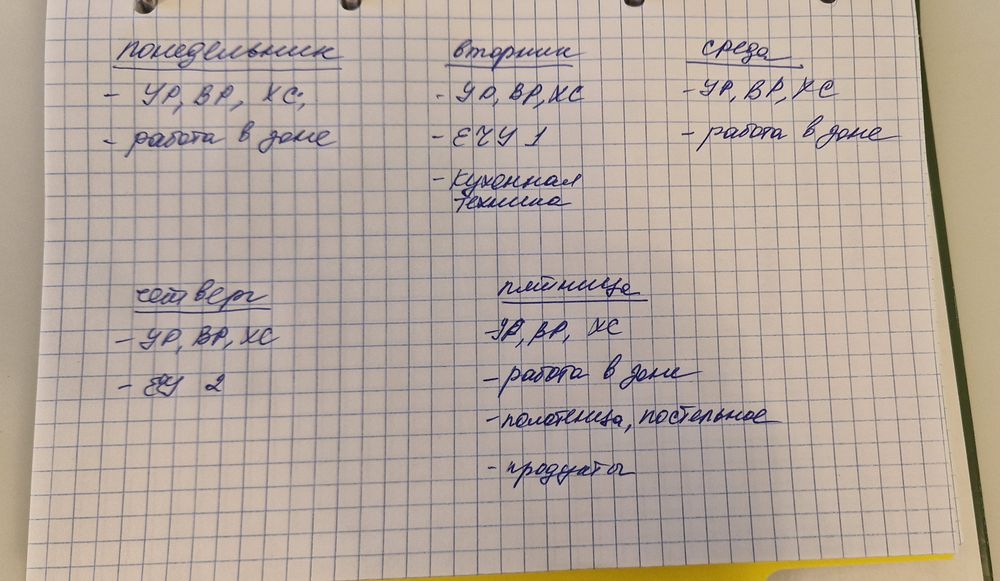 понедельник
- УР, ВР, ХС;
- работа в зоне
вторник
- УР, ВР, ХС
- ЕЧУ 1
- кухонная
техника
среда
- УР, ВР, ХС
- работа в зоне
четверг
- УР, ВР, ХС
- ЕЧУ 2
пятница
- УР, ВР, ХС
- работа в зоне
- полотенца, постельное
- продукты